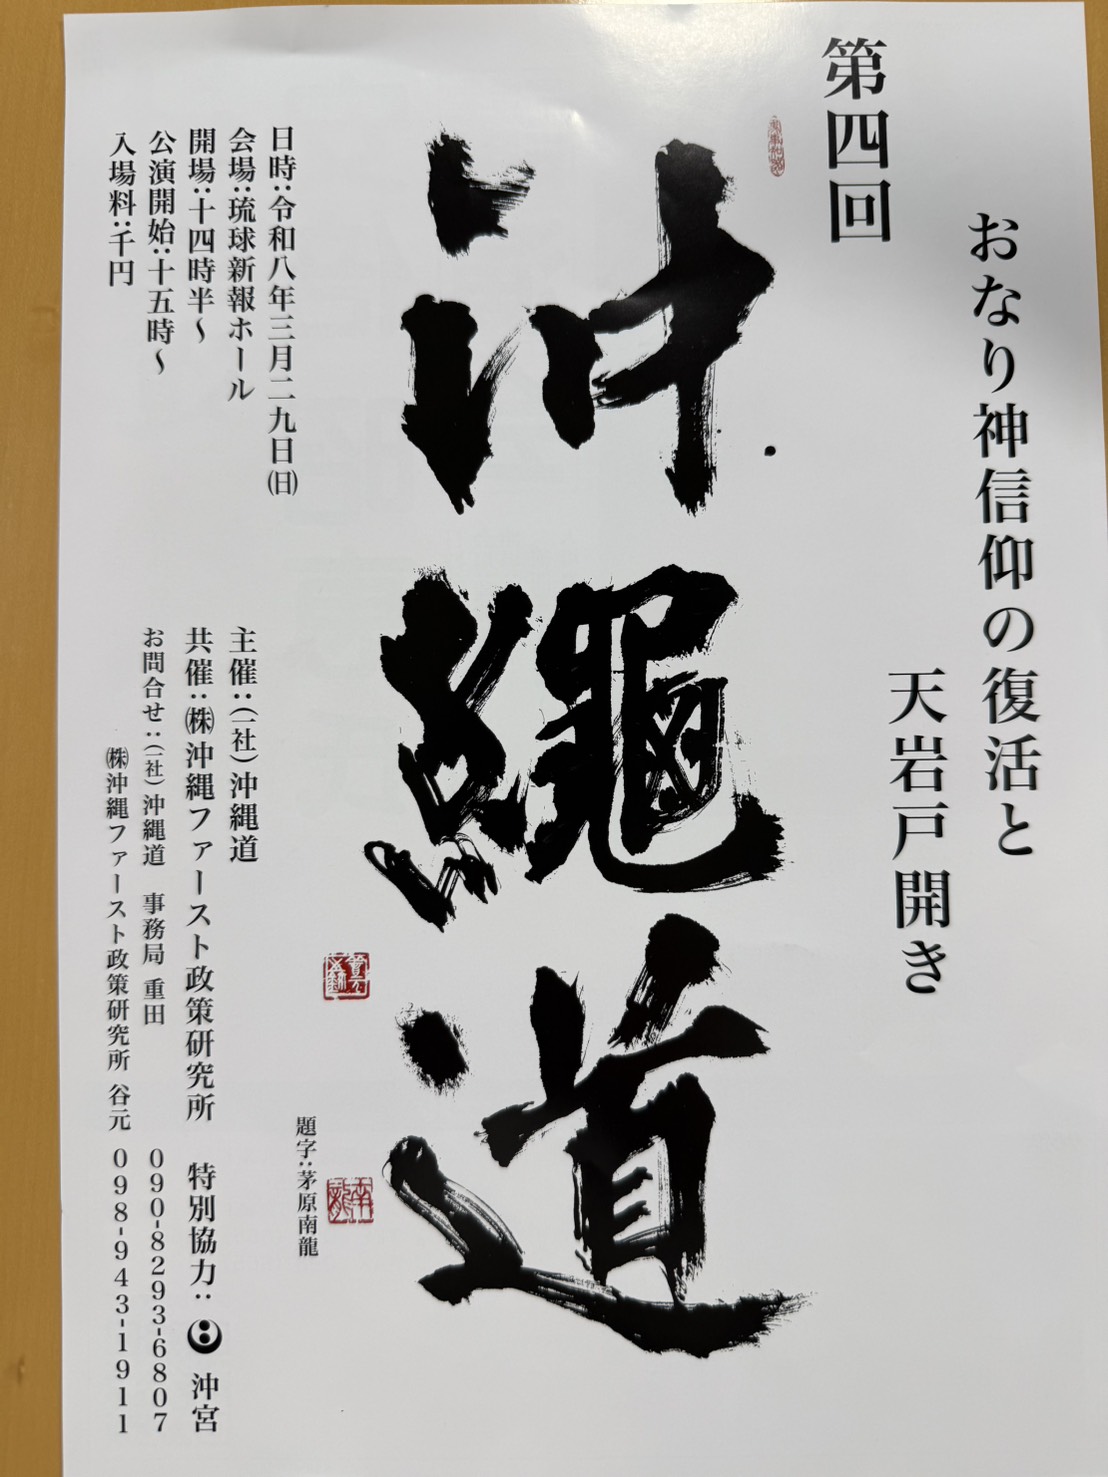 おなり神信仰の復活と
天岩戸開き
第四回
沖縄道
題字:茅原南龍
日時:令和八年三月二九日(日)
会場:琉球新報ホール
開場:十四時半〜
公演開始:十五時〜
入場料:千円
主催:(一社)沖縄道
共催:㈱沖縄ファースト政策研究所
特別協力: 沖宮
お問合せ:(一社)沖縄道 事務局 重田 090-8293-6807
㈱沖縄ファースト政策研究所 谷元 098-943-1911